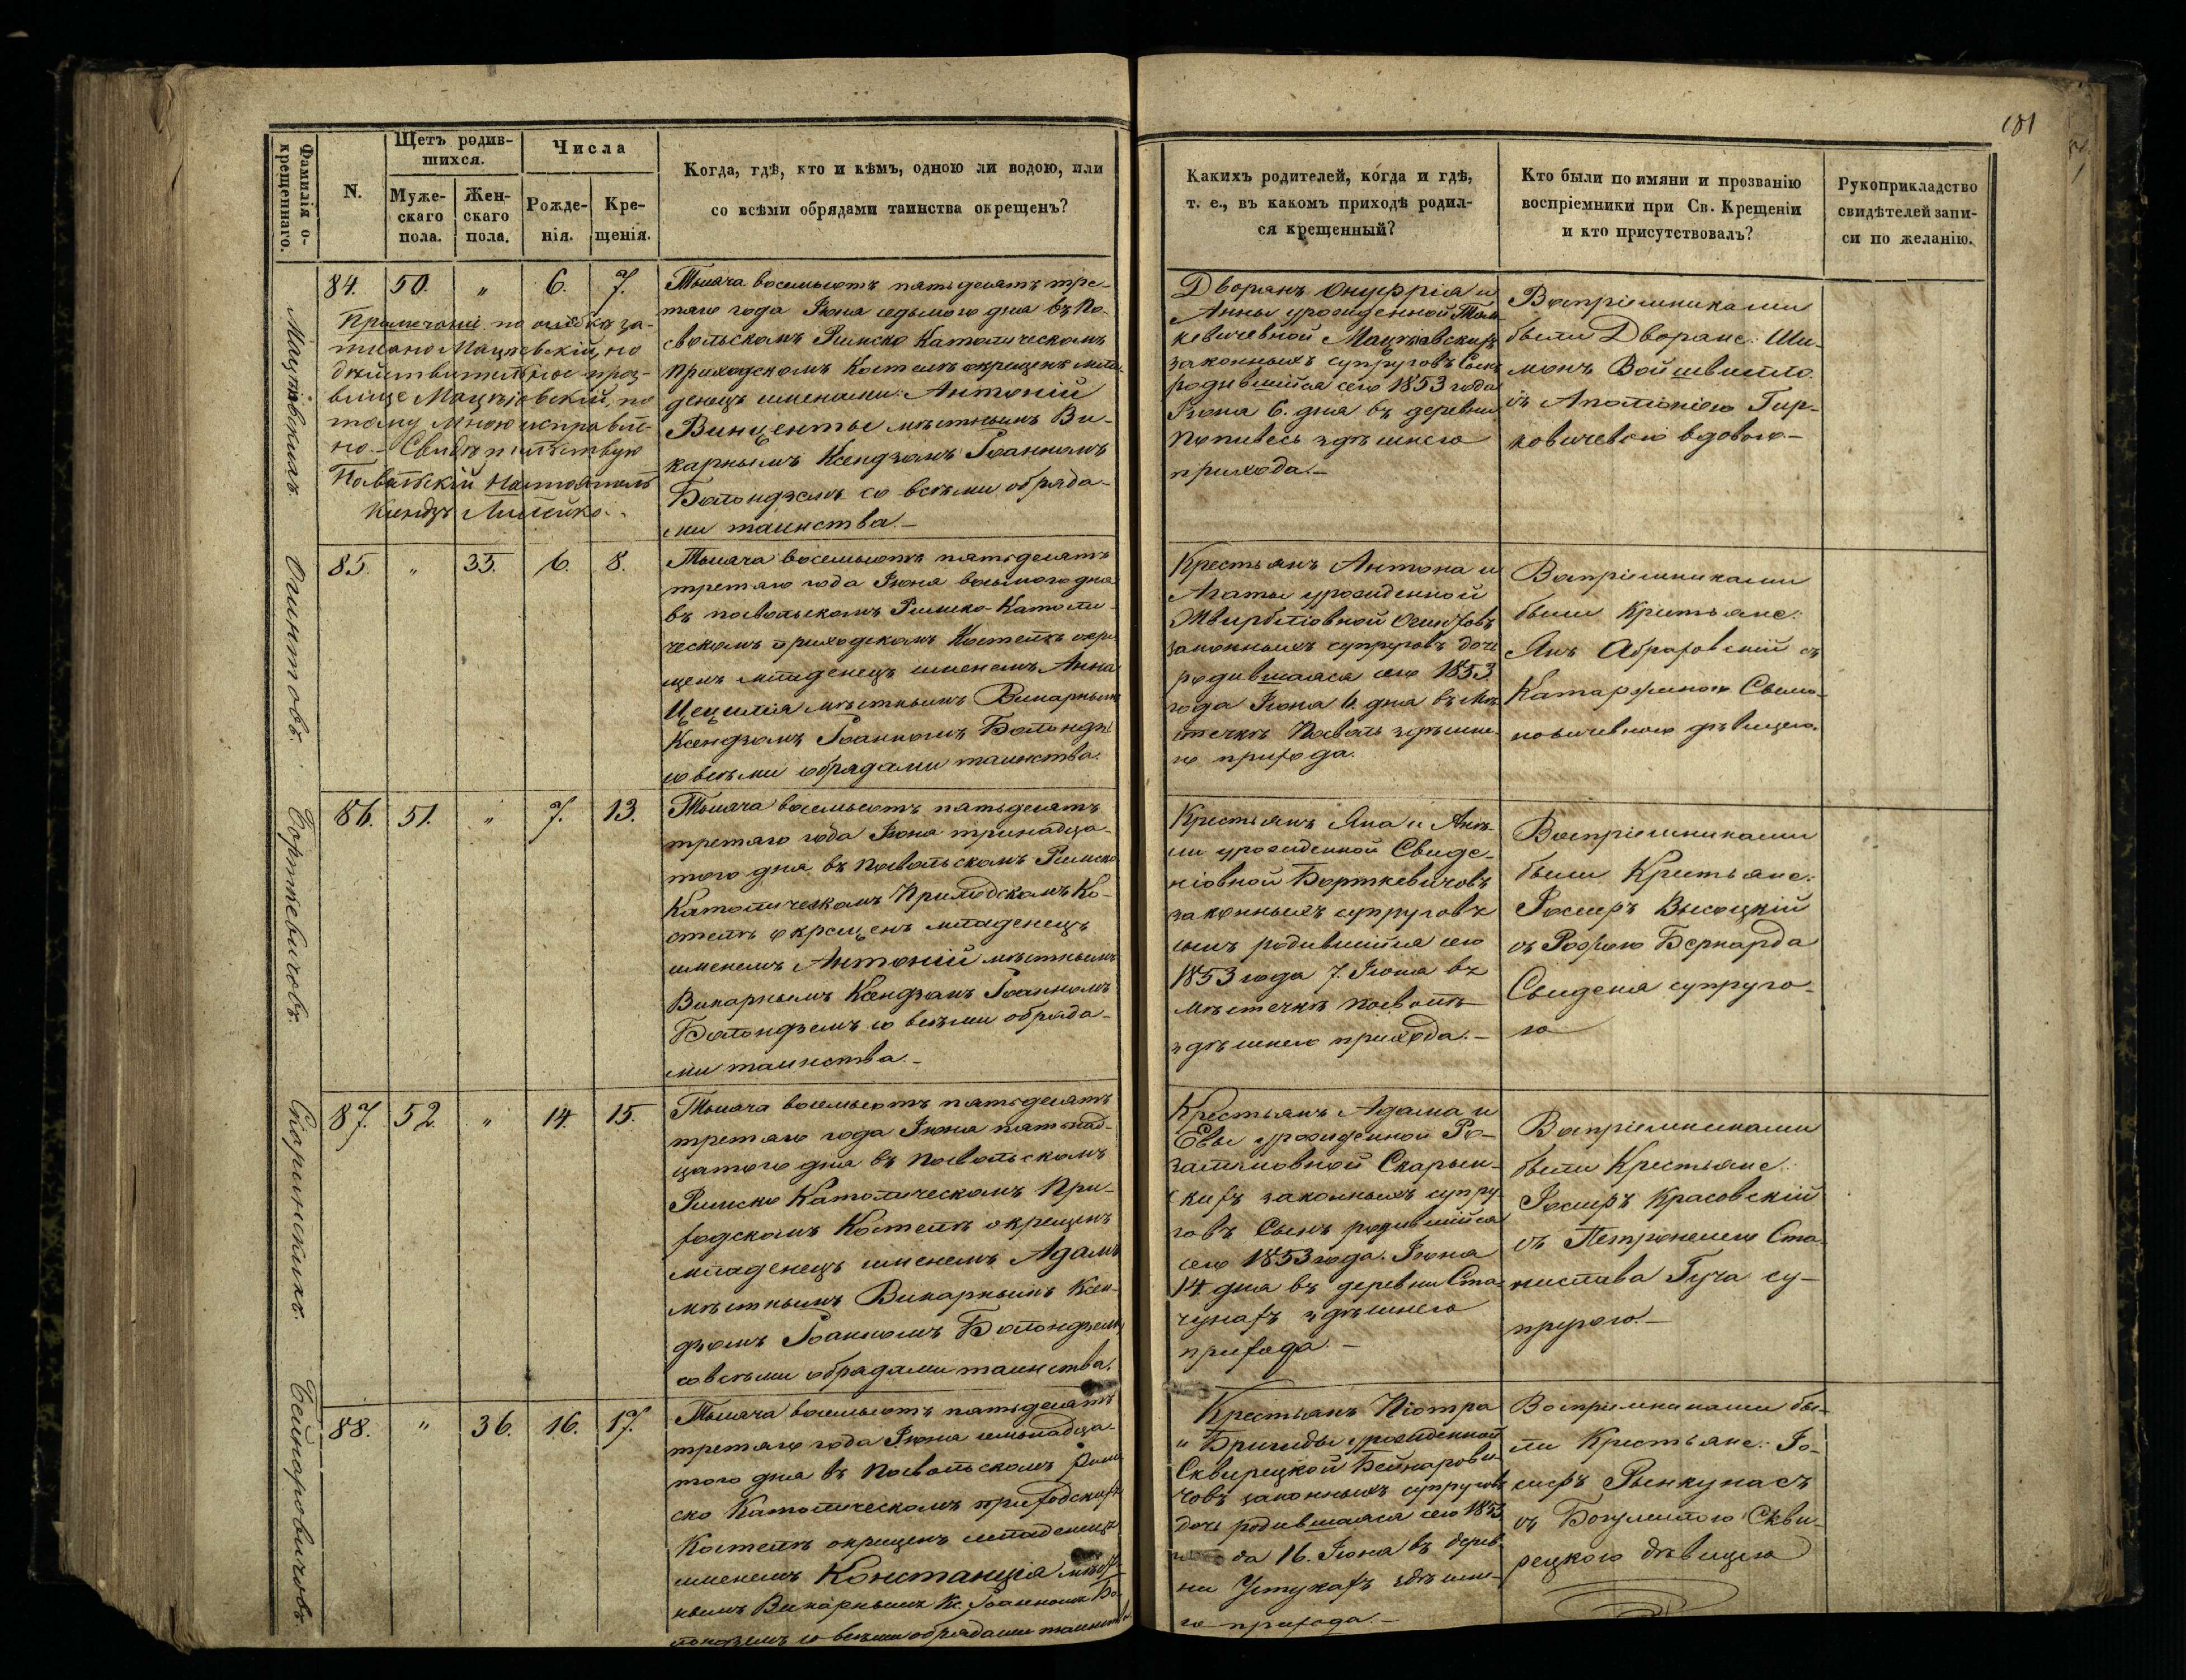 181
Фамилія о-
крещеннаго.
N.
Щетъ родив-
шихся.
Муже-
скаго
пола.
Жен-
скаго
пола.
Числа
Рожде-
нія.
Кре-
щенія.
Когда, гдѣ, кто и кѣмъ, одною ли водою, или
со всѣми обрядами таинства окрещенъ?
Какихъ родителей, когда и гдѣ,
т. е., въ какомъ приходѣ родил-
ся крещенный?
Кто были по имяни и прозванію
воспріемники при Св. Крещеніи
и кто присутствовалъ?
Рукоприкладство
свидѣтелей запи-
си по желанію.
Мацѣіовскихъ
84. 50. " 6. 7.
Примечаніе по ошибкѣ за-
писано Мацѣевскій, но
дѣйствительное проз-
вище Мацѣіовскій, по
тому мною исправле-
но - Свидѣтельствую
Посвольскій Настоятель
Ксендзъ
Тысяча восемьсотъ пятьдесятъ тре-
тяго года Іюня седьмого дня въ По-
свольскомъ Римско Католическомъ
приходскомъ Костелѣ окрещенъ мла-
денецъ именами: Антоній
Винцентые мѣстнымъ Ви-
карнымъ Ксендзомъ Іоанномъ
Болондземъ со всѣми обряда-
ми таинства.-
Дворянъ Онуфрія и
Анны урожденной
кевичевной Мацѣіовскихъ
законныхъ супруговъ Сынъ
родившійся сего 1853 года
Іюня 6. дня въ деревни
Попивесь здѣшнего
прихода.-
Воспріемниками
были Дворяне: Ши-
монъ Войшвилло
съ Аполоніею Гир-
ковичевою вдовою.-
Огинтовъ.
85. " 35. 6. 8.
Тысяча восемьсотъ пятьдесятъ
третяго года Іюня восьмого дня
въ посвольскомъ Римско-Католи-
ческомъ приходскомъ Костелѣ окре-
щенъ младенецъ именемъ Анна
Цецилія мѣстнымъ Викарнымъ
Ксендзомъ Іоанномъ Болондз
со всѣми обрядами таинства.
Крестьянъ Антона и
Агаты урожденной
Жвирбліовной Огинтовъ
законныхъ супруговъ дочь
родившаяся сего 1853.
года Іюня 6. дня въ Мѣ
стечкѣ Посволь здѣшне
го прихода.
Воспріемниками
были Крестьяне:
Янъ Абраховскій съ
Катаржиною
новичевною дѣвицею.
Борткевичовъ.
86. 51. " 7. 13.
Тысяча восемьсотъ пятьдесятъ
третяго года Іюня тринадца-
того дня въ Посвольскомъ Римско
Католическомъ Приходскомъ Ко-
стелѣ окрещенъ младенецъ
именемъ Антоній мѣстнымъ
Викарнымъ Ксендзомъ Іоанномъ
Болондземъ со всѣми обряда-
ми таинства.-
Крестьянъ Яна и Анѣ-
ли урожденной Свиде-
ніовной Борткевичовъ
законныхъ супруговъ
сынъ родившійся сего
1853 года 7. Іюня въ
мѣстечкѣ Посволѣ
здѣшнего прихода.-
Воспріемниками
были Крестьяне:
Іосифъ Высоцкій
съ Розою Бернарда
Свиденя супруго-
ю
Скоринскихъ.
87. 52. " 14. 15.
Тысяча восемьсотъ пятьдесятъ
третяго года Іюня пятьнад-
цатого дня въ Посвольскомъ
Римско Католическомъ При-
ходскомъ Костелѣ окрещенъ
младенецъ именемъ Адамъ
мѣстнымъ Викарнымъ Ксен-
дзомъ Іоанномъ Болондземъ
со всѣми обрядами таинства.
Крестьянъ Адама и
Евы урожденной Ро-
Скарын-
скихъ законныхъ супру-
говъ Сынъ родившійся
сего 1853 года. Іюня
14. дня въ деревни Ста-
чунахъ здѣшнего
прихода.-
Воспріемниками
были Крестьяне:
Іосифъ Красовскій
съ Петронелею Ста-
нислава Гуча су-
пругою.-
Бейнаровичовъ.
88. " 36. 16. 17.
Тысяча восемьсотъ пятьдесятъ
третяго года Іюня семьнадца-
того дня въ Посвольскомъ Рим
ско Католическомъ приходскомъ
Костелѣ окрещенъ младенецъ
именемъ Констанція мѣст-
нымъ Викарнымъ Кс. Іоанномъ Бо-
лондземъ со всѣми обрядами таинства
Крестьянъ Піотра
и Бригиды урожденной
Сквирецкой Бейнарови-
човъ законныхъ супруговъ
дочь родившаяся сего 1853
да 16. Іюня въ дерев-
ни Устукахъ здѣшне-
го прихода.-
Воспріемниками бы-
ли Крестьяне: Іо-
сифъ Рынкунасъ
съ Богумилою Скви-
рецкою дѣвицею